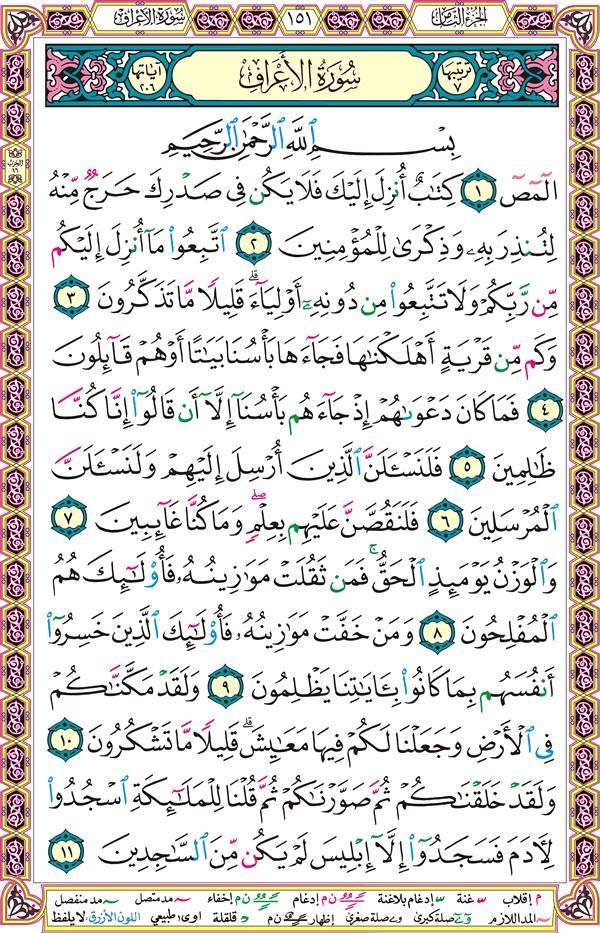 الجزء الثامن
١٥١
سورة الأعراف
ترتيبها ٧
سُورَةُ الأَعْرَافِ
آياتها ٢٠٦
الحزب ١٦
بِسْمِ ٱللَّهِ ٱلرَّحْمَٰنِ ٱلرَّحِيمِ
الٓمٓصٓ ١ كِتَٰبٌ أُنزِلَ إِلَيْكَ فَلَا يَكُن فِى صَدْرِكَ حَرَجٌ مِّنْهُ
لِتُنذِرَ بِهِۦ وَذِكْرَىٰ لِلْمُؤْمِنِينَ ٢ ٱتَّبِعُوا۟ مَآ أُنزِلَ إِلَيْكُم
مِّن رَّبِّكُمْ وَلَا تَتَّبِعُوا۟ مِن دُونِهِۦٓ أَوْلِيَآءَ ۗ قَلِيلًا مَّا تَذَكَّرُونَ ٣
وَكَم مِّن قَرْيَةٍ أَهْلَكْنَٰهَا فَجَآءَهَا بَأْسُنَا بَيَٰتًا أَوْ هُمْ قَآئِلُونَ
٤ فَمَا كَانَ دَعْوَىٰهُمْ إِذْ جَآءَهُم بَأْسُنَآ إِلَّآ أَن قَالُوٓا۟ إِنَّا كُنَّا
ظَٰلِمِينَ ٥ فَلَنَسْـَٔلَنَّ ٱلَّذِينَ أُرْسِلَ إِلَيْهِمْ وَلَنَسْـَٔلَنَّ
ٱلْمُرْسَلِينَ ٦ فَلَنَقُصَّنَّ عَلَيْهِم بِعِلْمٍ ۖ وَمَا كُنَّا غَآئِبِينَ ٧
وَٱلْوَزْنُ يَوْمَئِذٍ ٱلْحَقُّ ۚ فَمَن ثَقُلَتْ مَوَٰزِينُهُۥ فَأُو۟لَٰٓئِكَ هُمُ
ٱلْمُفْلِحُونَ ٨ وَمَنْ خَفَّتْ مَوَٰزِينُهُۥ فَأُو۟لَٰٓئِكَ ٱلَّذِينَ خَسِرُوٓا۟
أَنفُسَهُم بِمَا كَانُوا۟ بِـَٔايَٰتِنَا يَظْلِمُونَ ٩ وَلَقَدْ مَكَّنَّٰكُمْ
فِى ٱلْأَرْضِ وَجَعَلْنَا لَكُمْ فِيهَا مَعَٰيِشَ ۗ قَلِيلًا مَّا تَشْكُرُونَ ١٠
وَلَقَدْ خَلَقْنَٰكُمْ ثُمَّ صَوَّرْنَٰكُمْ ثُمَّ قُلْنَا لِلْمَلَٰٓئِكَةِ ٱسْجُدُوا۟
لِـَٔادَمَ فَسَجَدُوٓا۟ إِلَّآ إِبْلِيسَ لَمْ يَكُن مِّنَ ٱلسَّٰجِدِينَ ١١
م إقلاب غنة إدغام بلاغنة ن م إدغام ن م إخفاء مد متصل مد منفصل
المد اللازم صلة كبرى صلة صغرى إظهار ن م قلقلة اوى طبيعي اللون الأزرق لا يلفظ